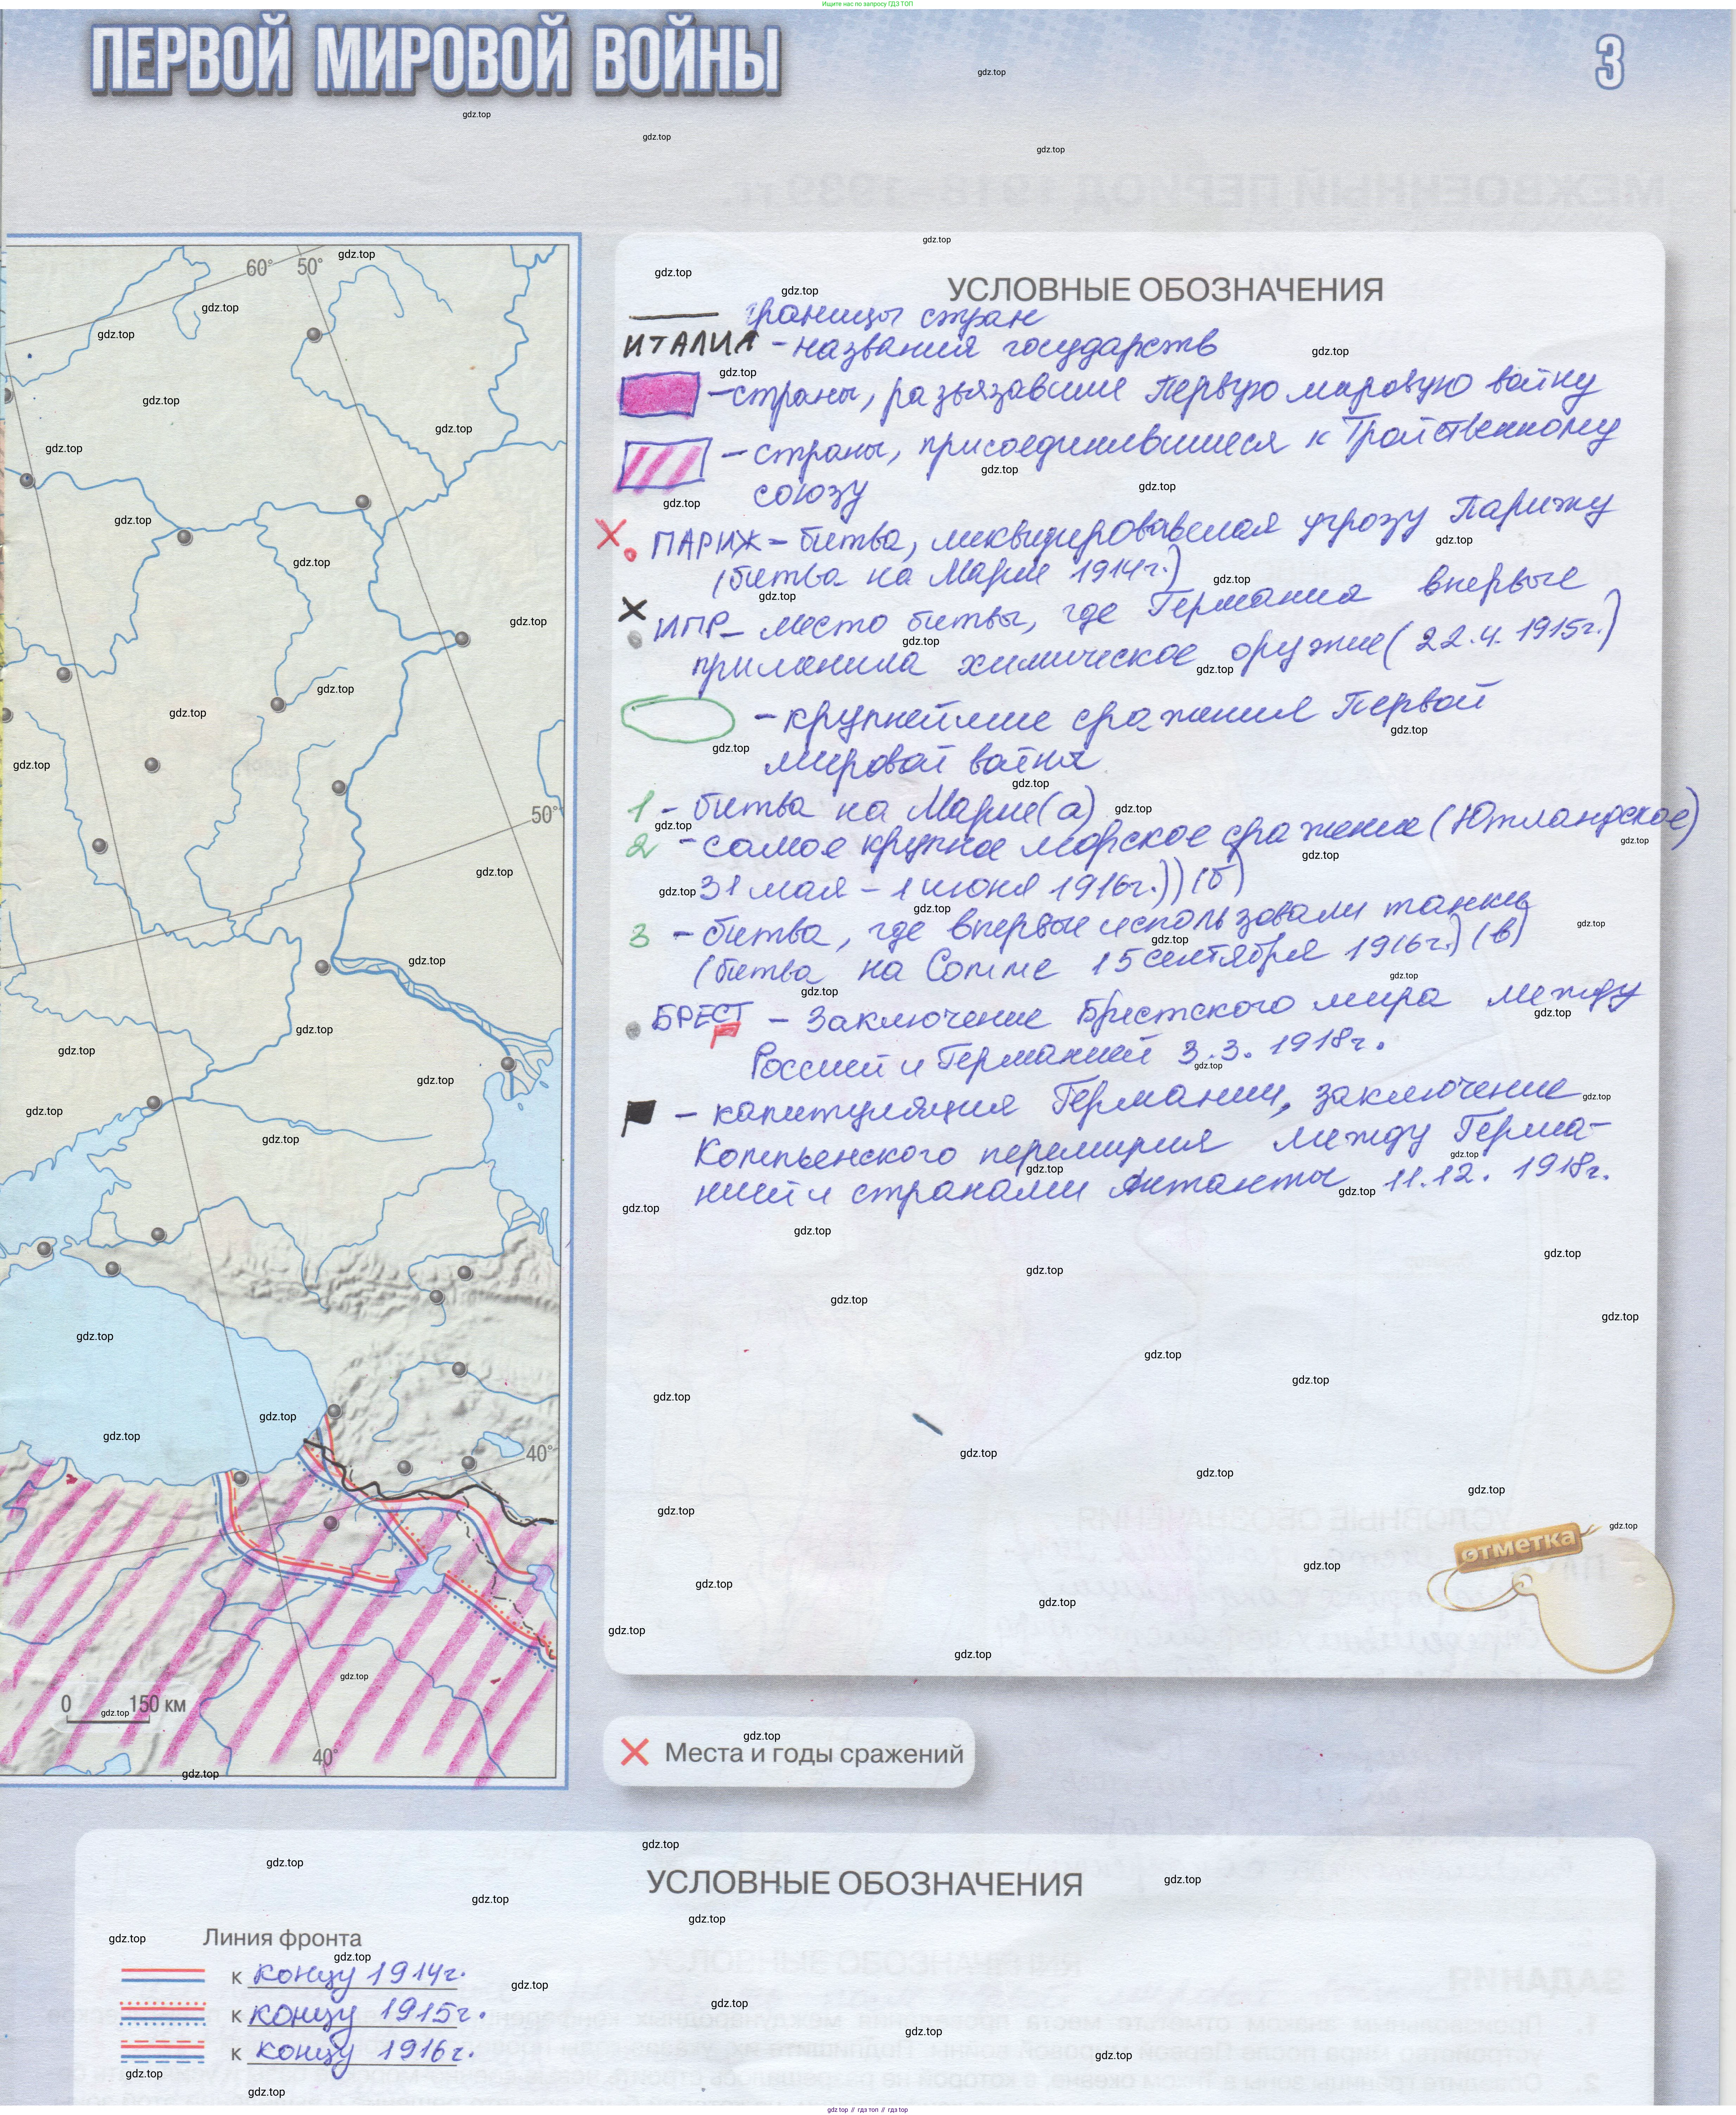 Ищите нас по запросу ГДЗ ТОП
ПЕРВОЙ МИРОВОЙ ВОЙНЫ
3
60° 50°
50°
40°
0 150 км
40°
УСЛОВНЫЕ ОБОЗНАЧЕНИЯ
границы стран
ИТАЛИЯ - названия государств
- страны, развязавшие Первую мировую войну
- страны, присоединившиеся к Тройственному
союзу
ПАРИЖ - битва, ликвидировавшая угрозу Парижу
(битва на Марне 1914г.)
ИПР - место битвы, где Германия впервые
применила химическое оружие (22.4.1915г.)
- крупнейшие сражения Первой
мировой войны
1 - битва на Марне (а)
2 - самое крупное морское сражение (Ютландское)
31 мая - 1 июня 1916г.)) (б)
3 - битва, где впервые использовали танки
(битва на Сомме 15 сентября 1916г.) (в)
БРЕСТ - Заключение Брестского мира между
Россией и Германией 3.3.1918г.
- капитуляция Германии, заключение
Компьенского перемирия между Герма-
нией и странами Антанты 11.12.1918г.
отметка
Места и годы сражений
УСЛОВНЫЕ ОБОЗНАЧЕНИЯ
Линия фронта
к концу 1914г.
к концу 1915г.
к концу 1916г.
gdz.top // гдз топ // gdz.top